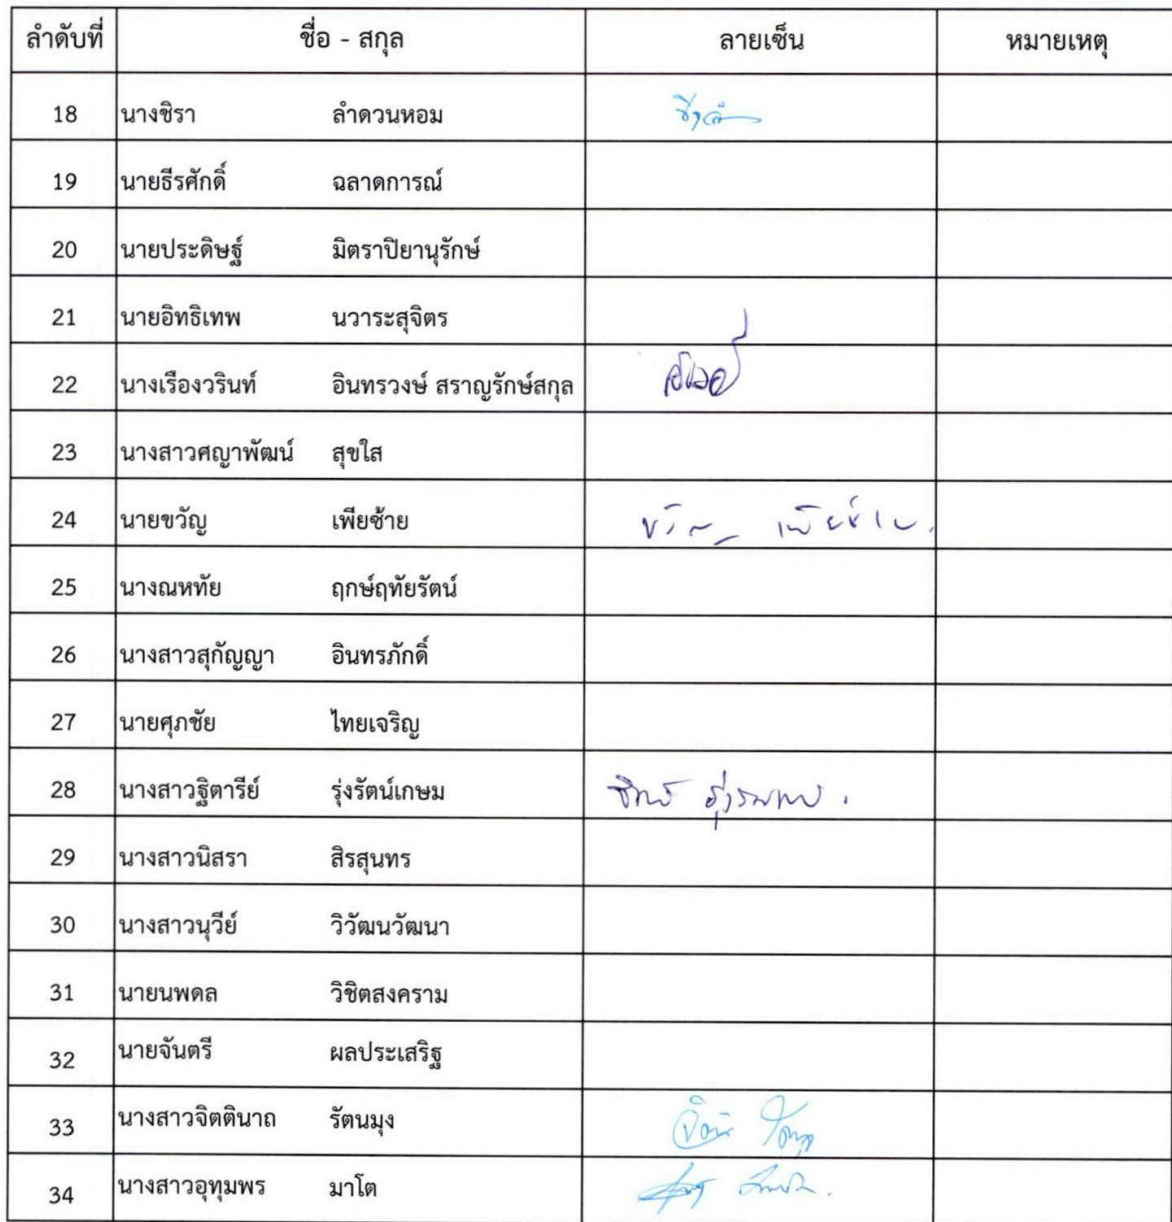 ลำดับที่ ชื่อ - สกุล ลายเซ็น หมายเหตุ
18 นางชิรา ลำดวนหอม
19 นายธีรศักดิ์ ฉลาดการณ์
20 นายประดิษฐ์ มิตราปิยานุรักษ์
21 นายอิทธิเทพ นวาระสุจิตร
22 นางเรืองวรินท์ อินทรวงษ์ สราญรักษ์สกุล
23 นางสาวศญาพัฒน์ สุขใส
24 นายขวัญ เพียซ้าย ขวัญ เพียซ้าย
25 นางณหทัย ฤกษ์ฤทัยรัตน์
26 นางสาวสุกัญญา อินทรภักดิ์
27 นายศุภชัย ไทยเจริญ
28 นางสาวฐิตารีย์ รุ่งรัตน์เกษม
29 นางสาวนิสรา สิรสุนทร
30 นางสาวนุวีย์ วิวัฒนวัฒนา
31 นายนพดล วิชิตสงคราม
32 นายจันตรี ผลประเสริฐ
33 นางสาวจิตตินาถ รัตนมุง
34 นางสาวอุทุมพร มาโต